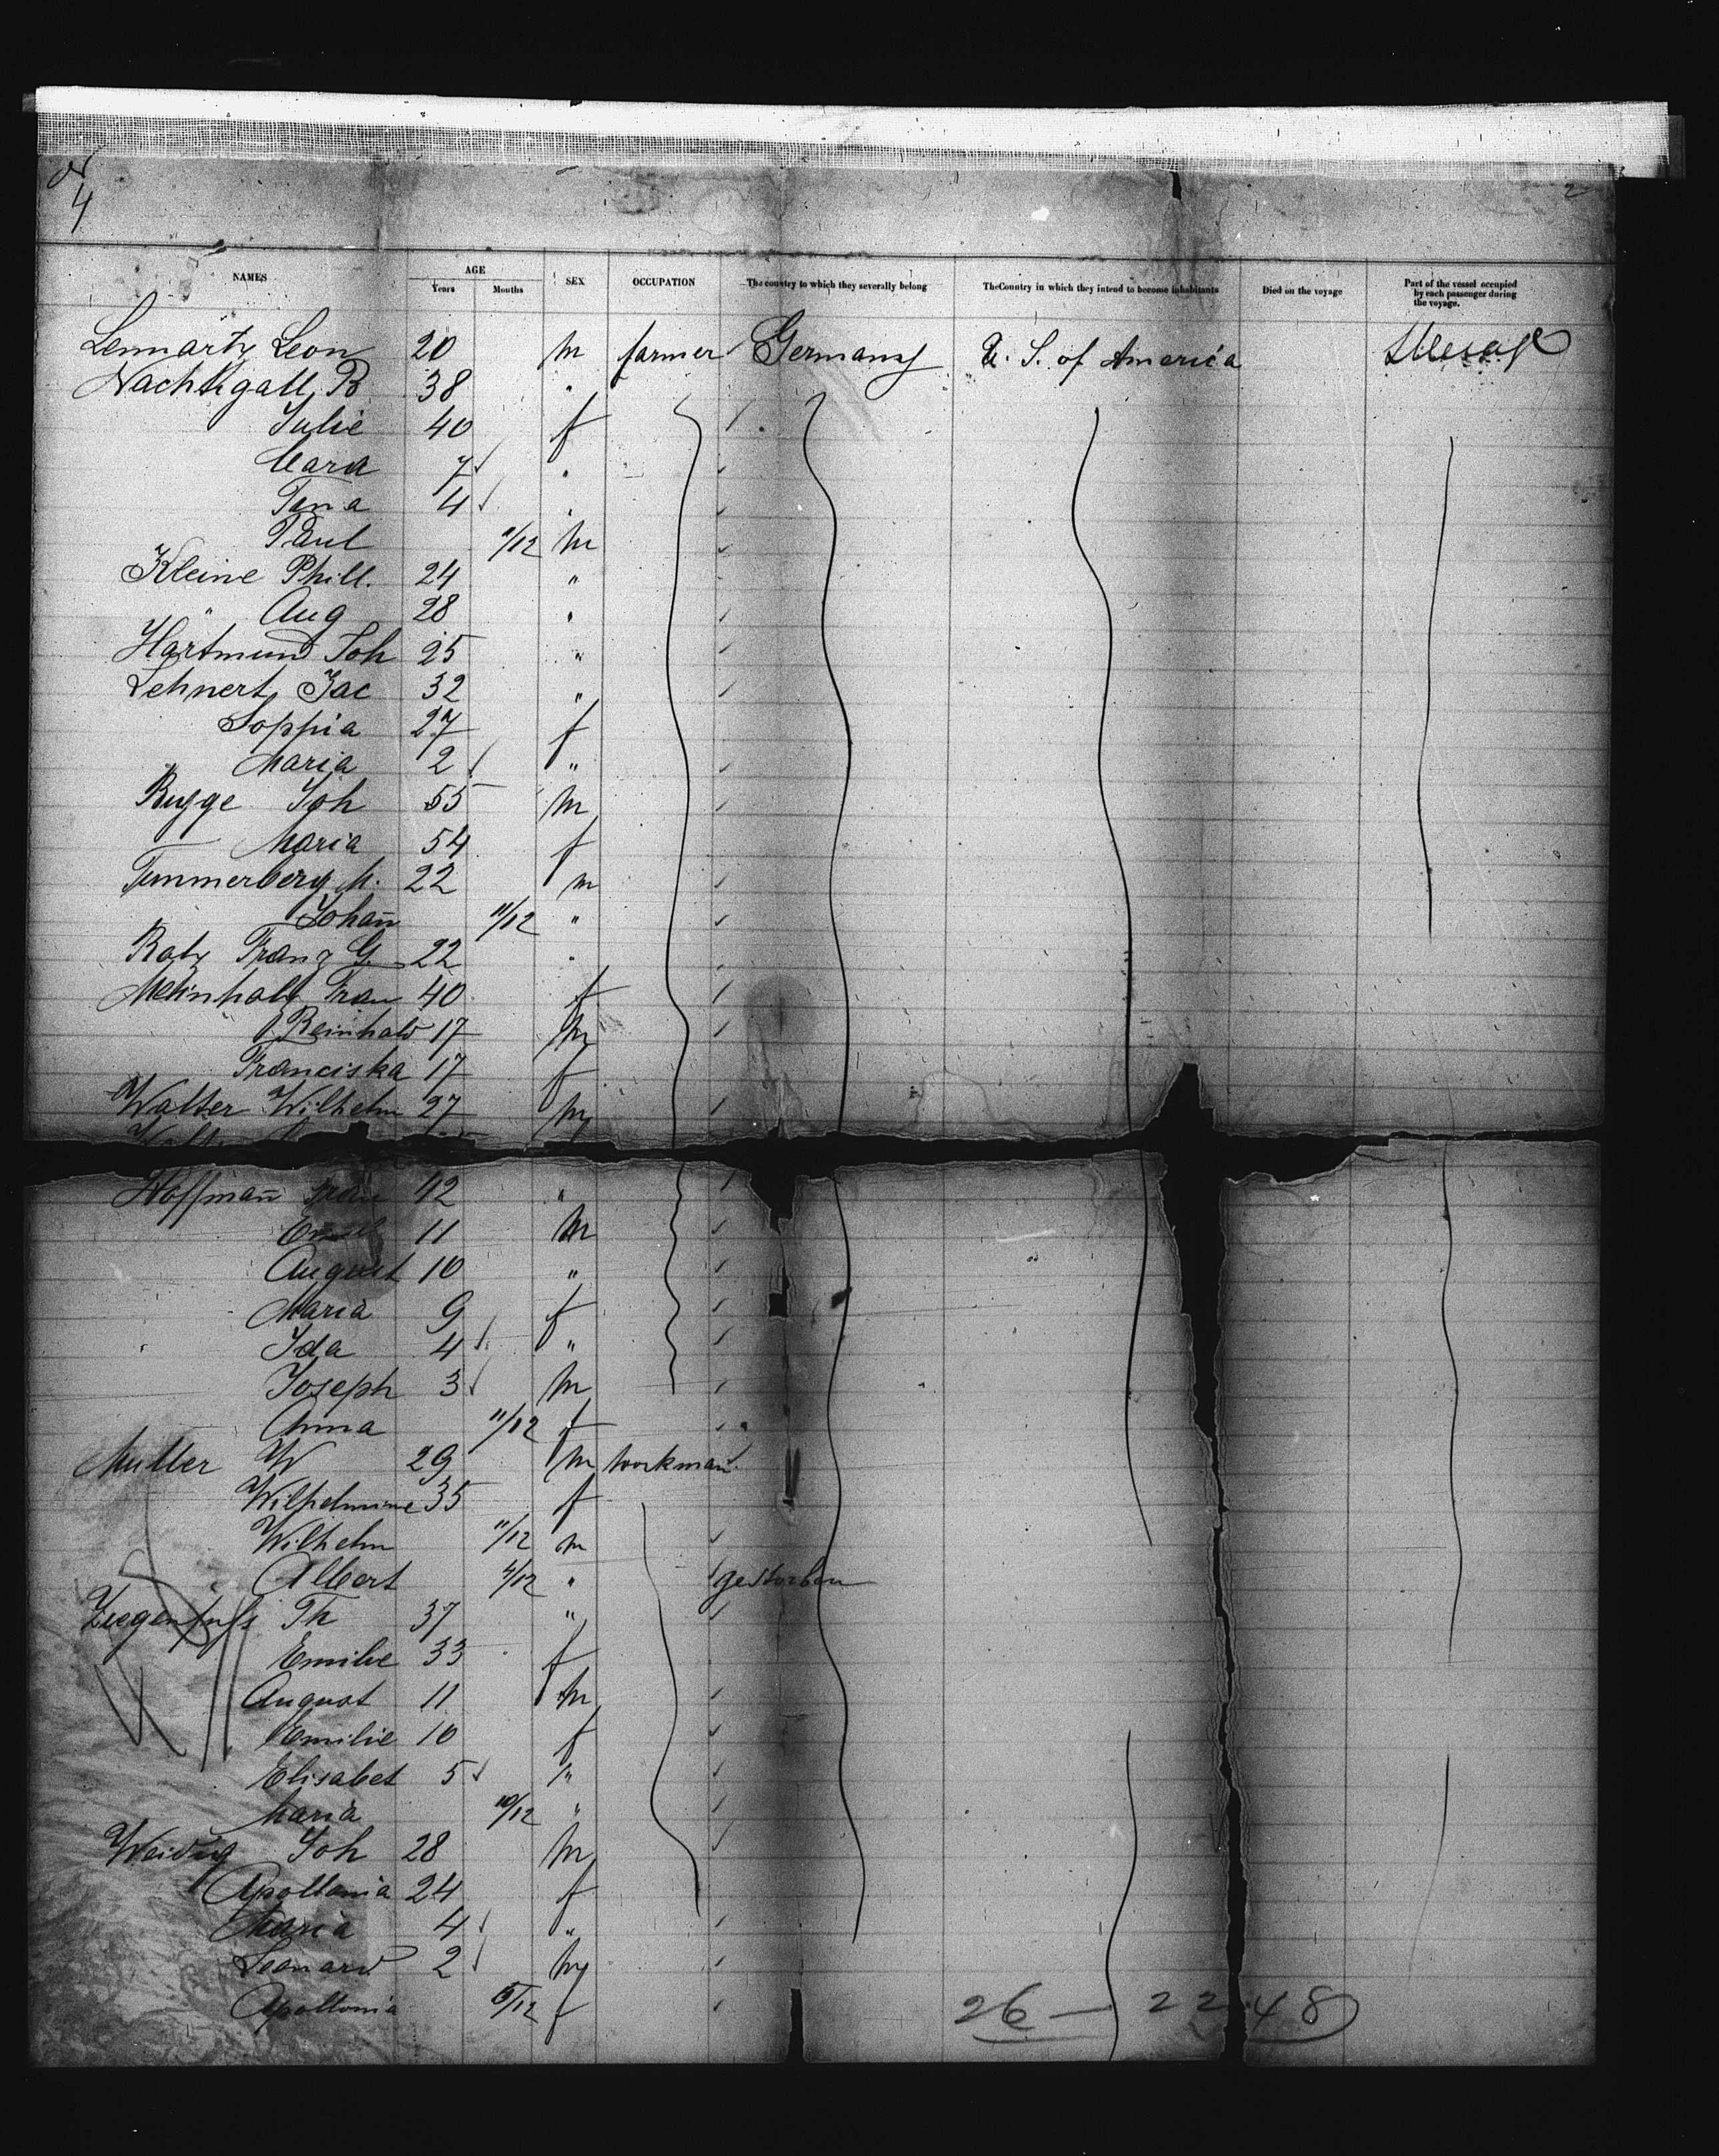 4
2
NAMES AGE Years Months SEX OCCUPATION The country to which they severally belong TheCountry in which they intend to become inhabitants Died on the voyage Part of the vessel occupied by each passenger during the voyage.
Lennartz Leon 20 m farmer Germany U. S. of America
Nachtigall, B 38 "
Julie 40 f
Clara 7 "
4 "
Paul /12 m
Kleine Phill. 24 "
" Aug 28 "
Hartmund Joh 25 "
Lehnert, Jac 32 "
Sophia 27 f
Maria 2 "
Rugge Joh 55 m
Maria 54 f
Timmerberg M. 22 m
Johan̅ 11/12 "
Franz G. 22 "
Meinhold Frau 40 f
Reinhold 17 m
Franciska 17 f
Walter Wilhelm 27 m
Hoffman̅ Frau 42 "
11 m
August 10 "
Maria 9 f
Ida 4 "
Joseph 3 m
Anna 11/12 f
Muller W 29 m workman
Wilhelmine 35 f
Wilhelm 11/12 m
Albert 4/12 " gestorben
Ziegenfuss Th 37 "
Emilie 33 f
August 11 m
Emilie 10 f
Elisabet 5 "
Maria 10/12 "
Weidig Joh 28 m
Apollonia 24 f
Maria 4 "
Leonard 2 m
Apollonia 5/12 f
26 — 22 48